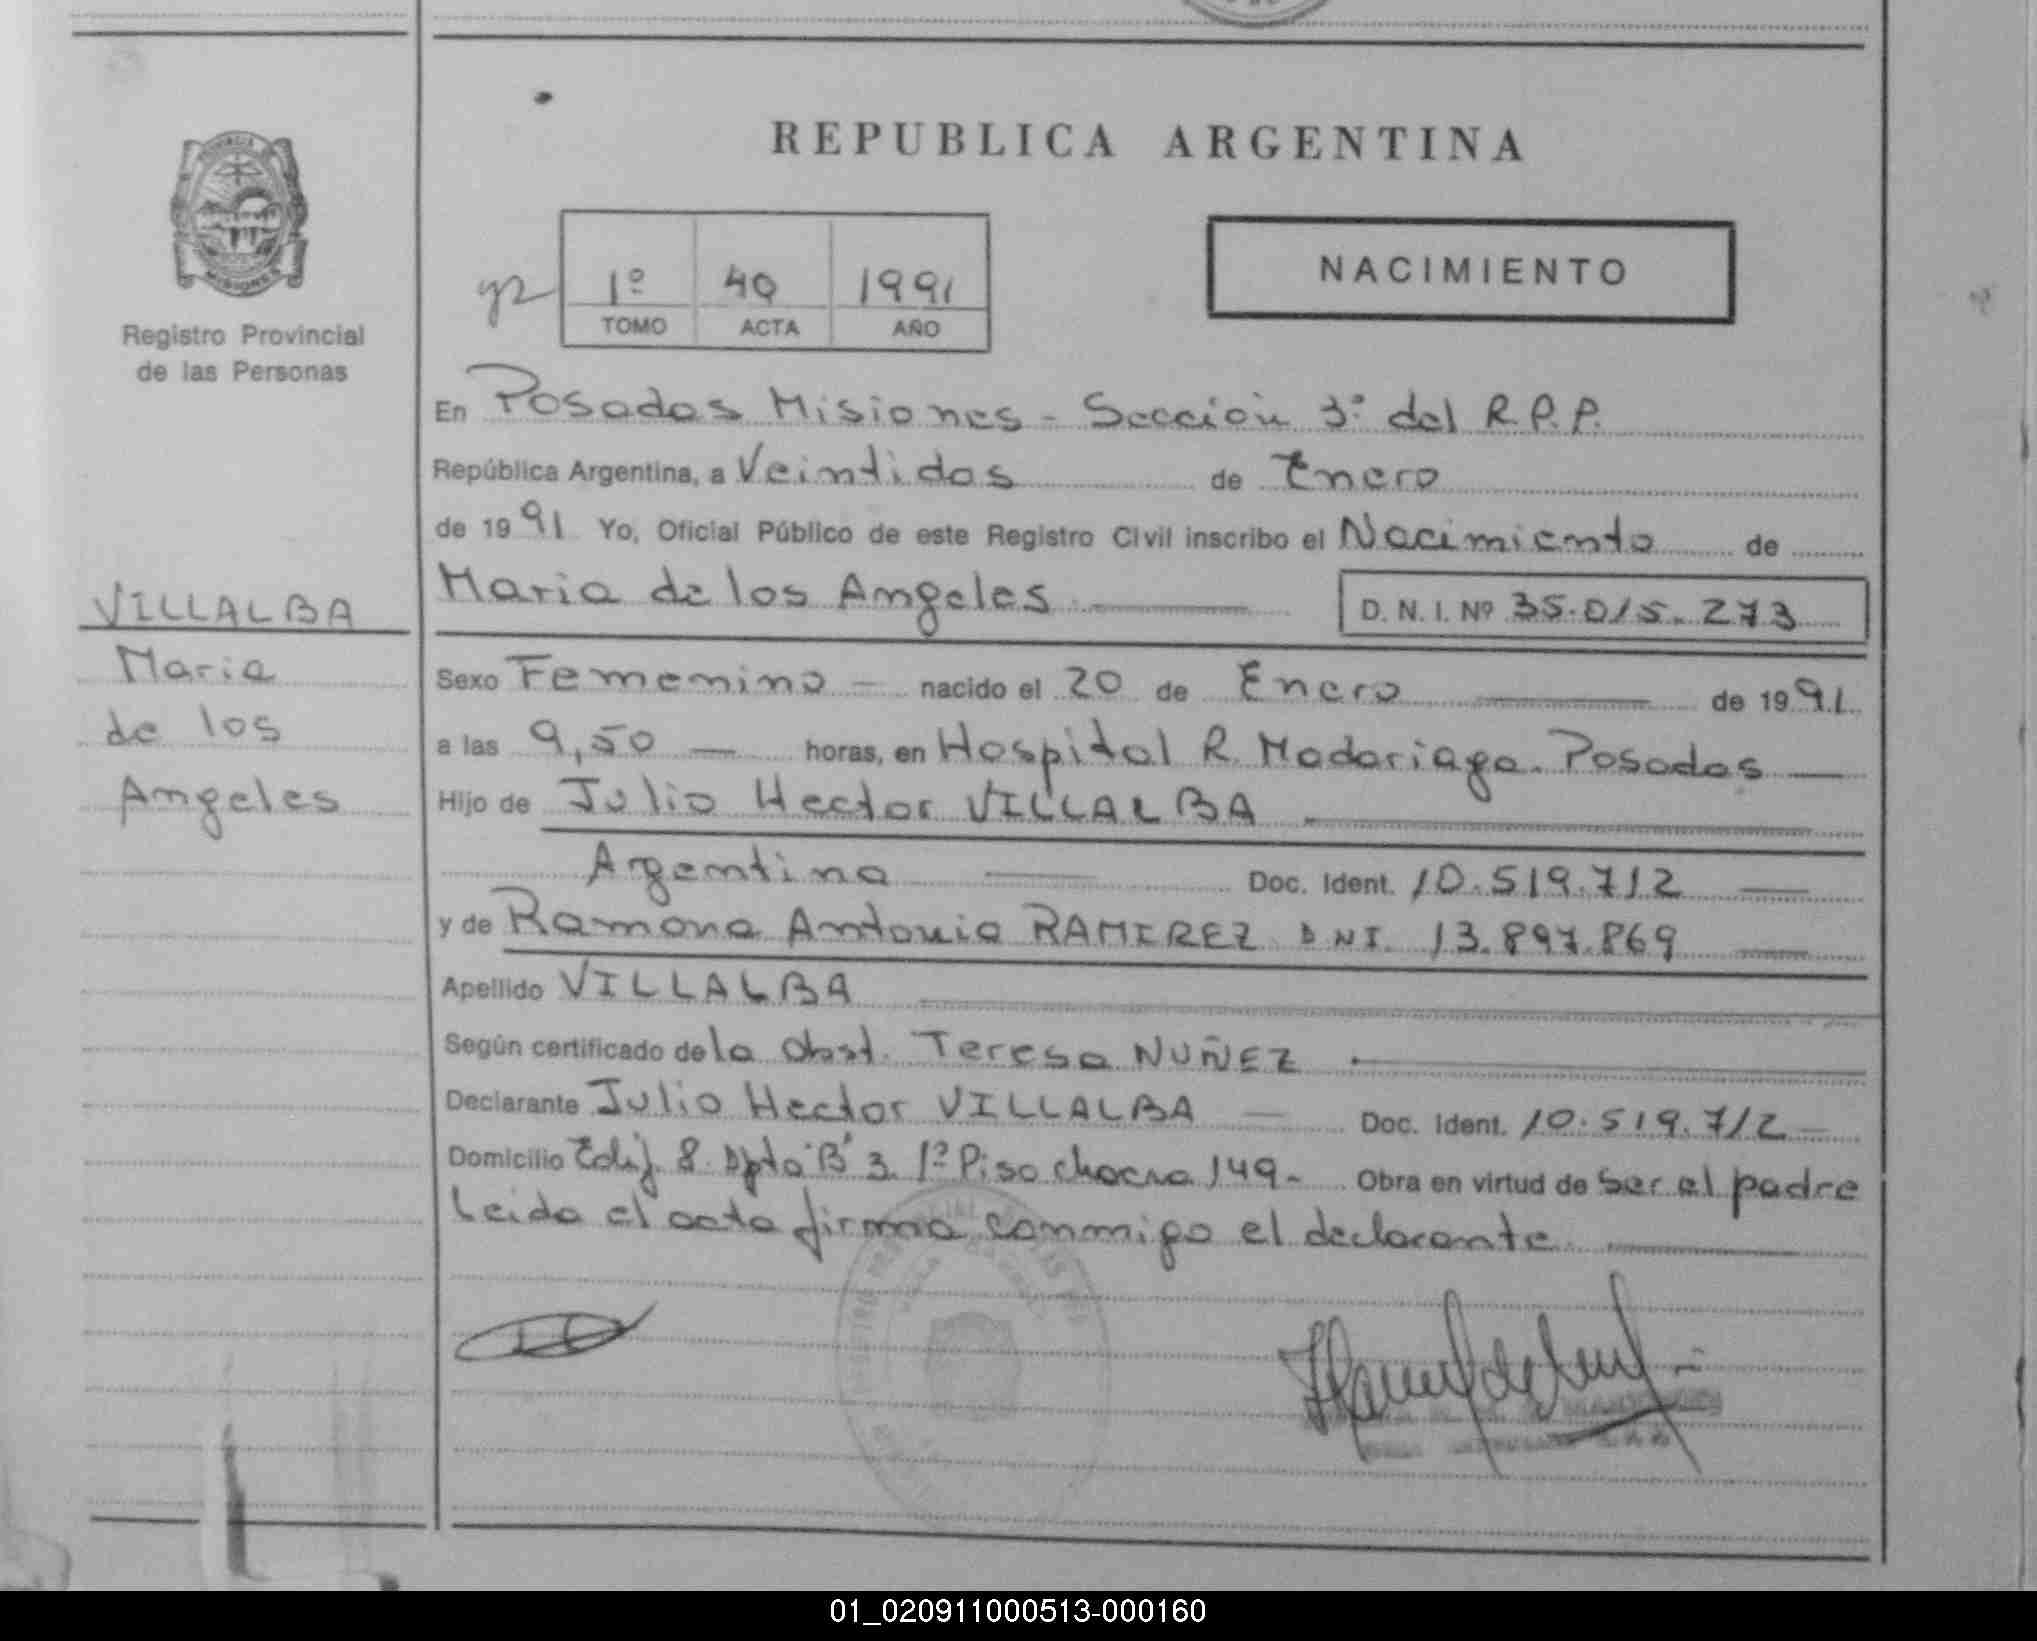 REPUBLICA ARGENTINA
NACIMIENTO
1º 40 1991
TOMO ACTA AÑO
Registro Provincial
de las Personas
MISIONES
En Posadas Misiones - Sección 3ª del R.P.P.
República Argentina, a Veintidos de Enero
de 1991 Yo, Oficial Público de este Registro Civil inscribo el Nacimiento de
Maria de los Angeles D. N. I. Nº 35.015.273
VILLALBA
Maria
de los
Angeles
Sexo Femenino - nacido el 20 de Enero de 1991
a las 9,50 horas, en Hospital R. Madariaga. Posadas
Hijo de Julio Hector VILLALBA
Argentina Doc. Ident. 10.519.712
y de Ramona Antonia RAMIREZ DNI. 13.897.869
Apellido VILLALBA
Según certificado de la Obst. Teresa NUÑEZ
Declarante Julio Hector VILLALBA Doc. Ident. 10.519.712
Domicilio Edif. 8 Dpto "B" 3 1º Piso chacra 149- Obra en virtud de ser el padre
Leida el acta firma conmigo el declarante
01_020911000513-000160